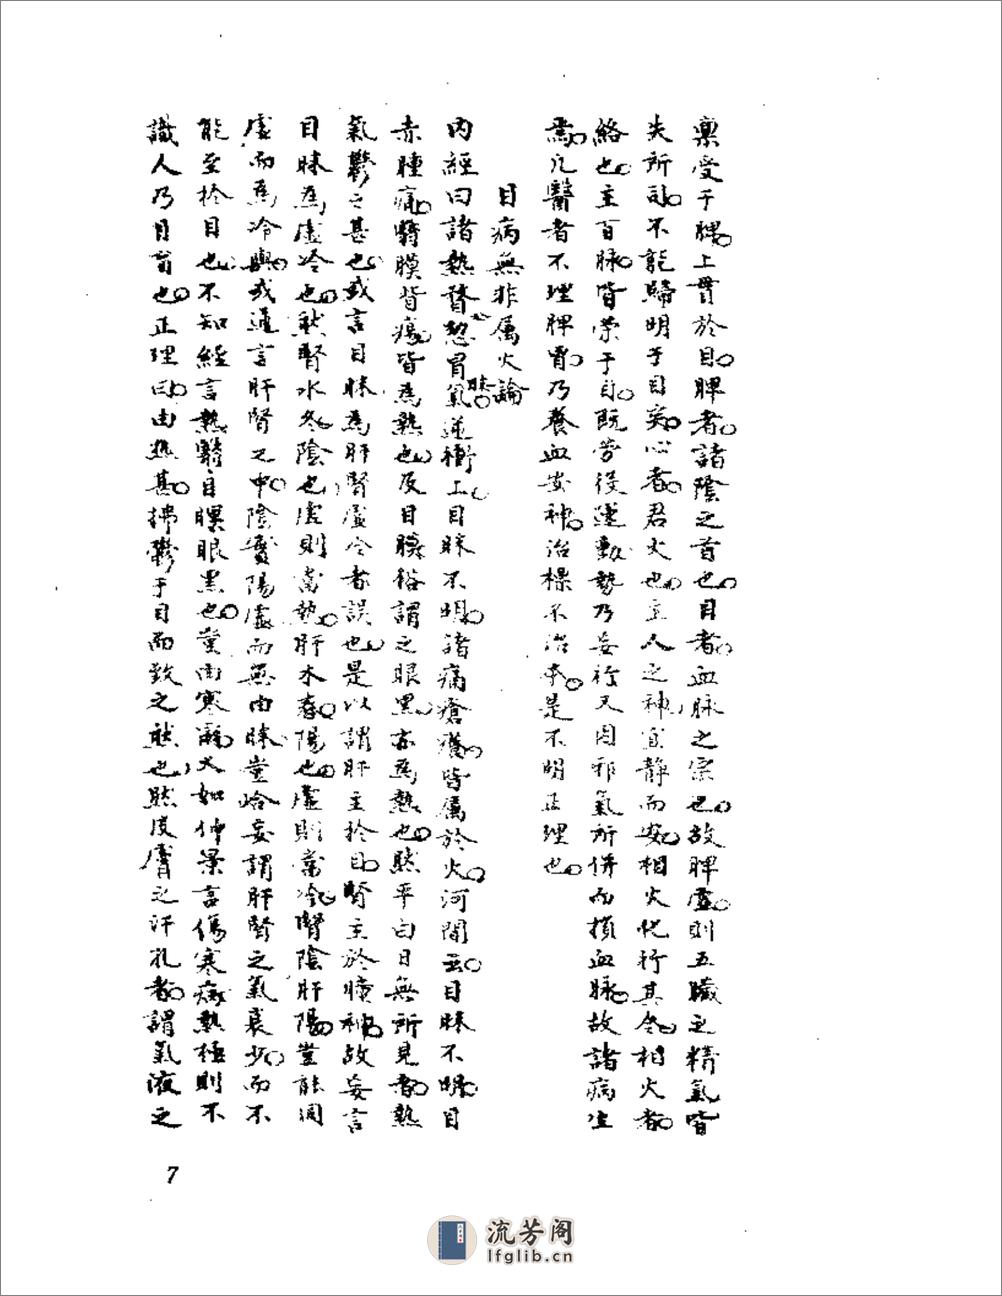 稟受于脾上貫於目脾者諸陰之首也目者血脉之宗也故脾虛則五臟之精氣皆
失所司不能歸明于目矣心者君火也主人之神宜靜而安相火代行其令相火者
絡也主百脉皆荣于目既劳役運動勢乃妄行又因邪氣所併而損血脉故諸病生
焉凡醫者不理脾胃乃養血安神治標不治本是不明正理也
目病無非属火論
内經曰諸熱瞀愗冒氣逆衝上目昧不明諸痛瘡瘍皆属於火河間云目昧不明目
赤腫痛翳膜皆瘍皆為熱也及目矇俗謂之眼黑亦為熱也然平白目無所見者熱
氣鬱之甚也或言目昧為肝腎虛冷者誤也是以謂肝主於目腎主於瞳神故妄言
目昧為虛冷也然腎水冬陰也虛則當熱肝木春陽也虛則當冷腎陰肝陽豈能同
虛而為冷歟或通言肝腎之中陰實陽虛而無由昧豈恰妄謂肝腎之氣衰少而不
能至於目也不知經言熱翳目瞟眼黑也豈由寒爾又如仲景言傷寒病熱極則不
識人乃目盲也正理曰由熱甚拂鬱于目而致之然也然皮膚之汗孔者謂氣液之
7
流芳阁
lfglib.cn